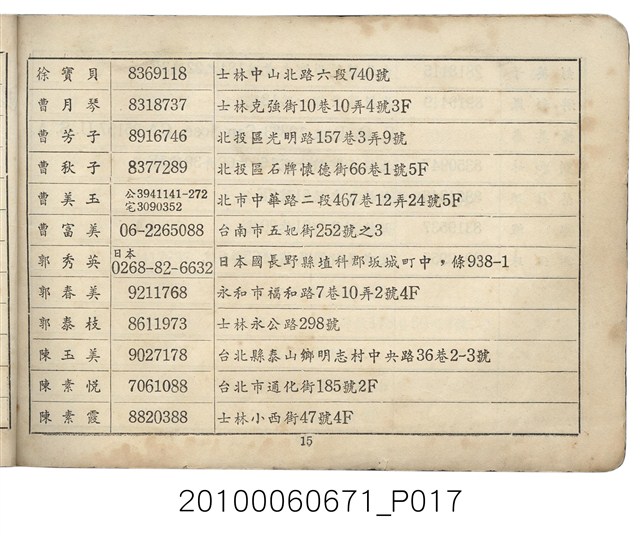 徐寶貝 8369118 士林中山北路六段740號
曹月琴 8318737 士林克強街10巷10弄4號3F
曹芳子 8916746 北投區光明路157巷3弄9號
曹秋子 8377289 北投區石牌懷德街66巷1號5F
曹美玉 公3941141-272 北市中華路二段467巷12弄24號5F
宅3090352
曹富美 06-2265088 台南市五妃街252號之3
郭秀英 日本 0268-82-6632 日本國長野縣埴科郡坂城町中，條938-1
郭春美 9211768 永和市福和路7巷10弄2號4F
郭泰枝 8611973 士林永公路298號
陳玉美 9027178 台北縣泰山鄉明志村中央路36巷2-3號
陳素悅 7061088 台北市通化街185號2F
陳素霞 8820388 士林小西街47號4F
15
20100060671_P017